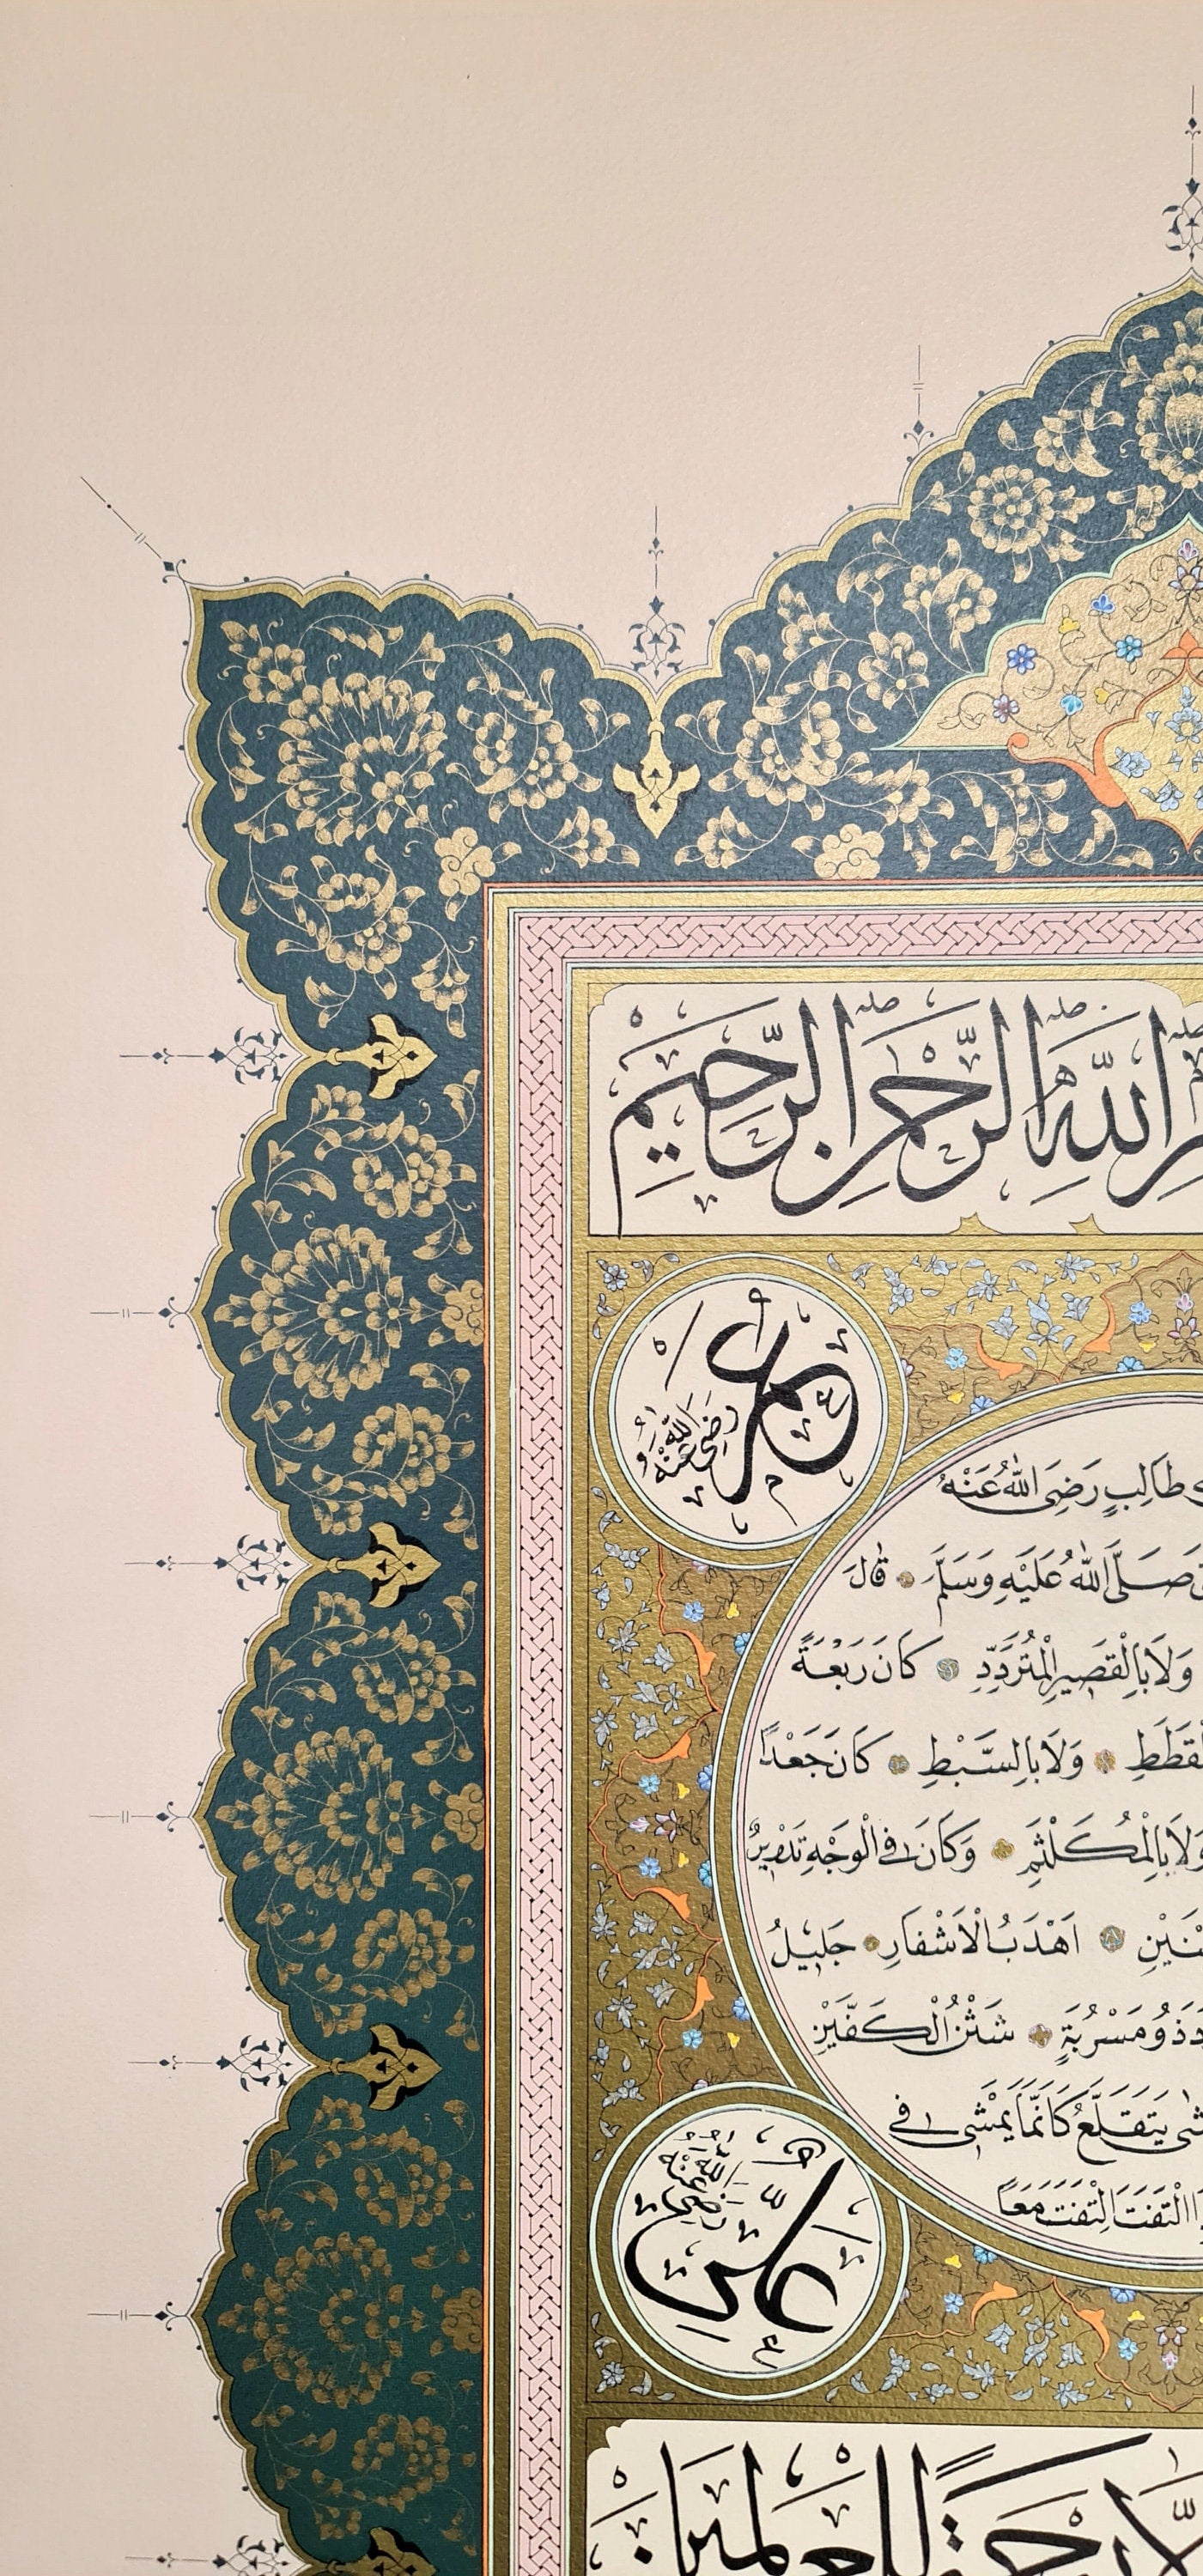 اللَّهِ الرَّحْمٰنِ الرَّحِيمِ
عُمَر رَضِيَ اللَّهُ عَنْهُ
طَالِبٍ رَضِيَ اللَّهُ عَنْهُ
صَلَّى اللَّهُ عَلَيْهِ وَسَلَّمَ قَالَ
وَلَا بِالْقَصِيرِ الْمُتَرَدِّدِ كَانَ رَبْعَةً
الْقَطَطِ وَلَا بِالسَّبْطِ كَانَ جَعْدًا
وَلَا بِالْمُكَلْثَمِ وَكَانَ فِي الْوَجْهِ تَدْوِيرٌ
اَهْدَبُ الْاَشْفَارِ جَلِيلُ
ذُو مَسْرُبَةٍ شَثْنُ الْكَفَّيْنِ
يَتَقَلَّعُ كَاَنَّمَا يَمْشِي فِي
الْتَفَتَ الْتَفَتَ مَعًا
عَلِي رَضِيَ اللَّهُ عَنْهُ
رَحْمَةً لِلْعَالَمِينَ